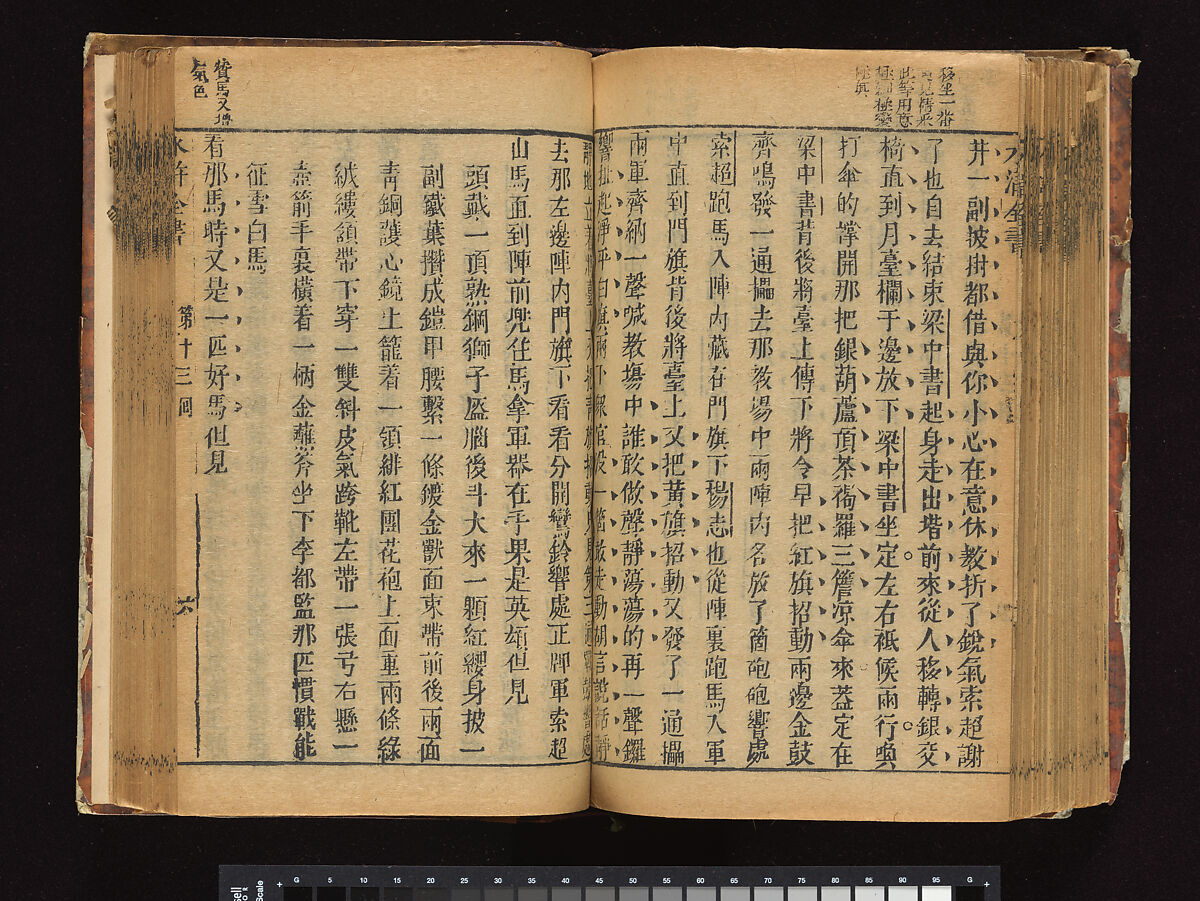 移坐一番
更見情采
此等用意
水滸全書
并一副披掛都借與你小心在意休教折了銳氣索超謝
了也自去結束梁中書起身走出堦前來從人移轉銀交
椅直到月臺欄干邊放下梁中書坐定左右祗候兩行喚
打傘的撐開那把銀葫蘆頂茶褐羅三簷凉傘來蓋定在
梁中書背後將臺上傳下將令早把紅旗招動兩邊金鼓
齊鳴發一通擂去那教塲中兩陣内各放了箇砲砲響處
索超跑馬入陣内藏在門旗下楊志也從陣裏跑馬入軍
中直到門旗背後將臺上又把黃旗招動又發了一通擂
兩軍齊納一聲喊教塲中誰敢做聲靜蕩蕩的再一聲鑼
響扯起淨平白旗兩下衆官沒一箇敢走動胡言說話靜
靜地立着將臺上又把青旗招動只見第三通戰鼓響處
去那左邊陣内門旗下看看分開鸞鈴響處正牌軍索超
出馬直到陣前兜住馬拿軍器在手果是英雄但見
頭戴一頂熟鋼獅子盔腦後斗大來一顆紅纓身披一
副鐵葉攢成鎧甲腰繫一條鍍金獸面束帶前後兩面
青銅護心鏡上籠着一領緋紅團花袍上面垂兩條綠
絨縷頷帶下穿一雙斜皮氣跨靴左帶一張弓右懸一
壺箭手裏橫着一柄金蘸斧坐下李都監那匹慣戰能
征雪白馬
贊馬又增
氣色
看那馬時又是一匹好馬但見
水滸全書 第十三囘 六